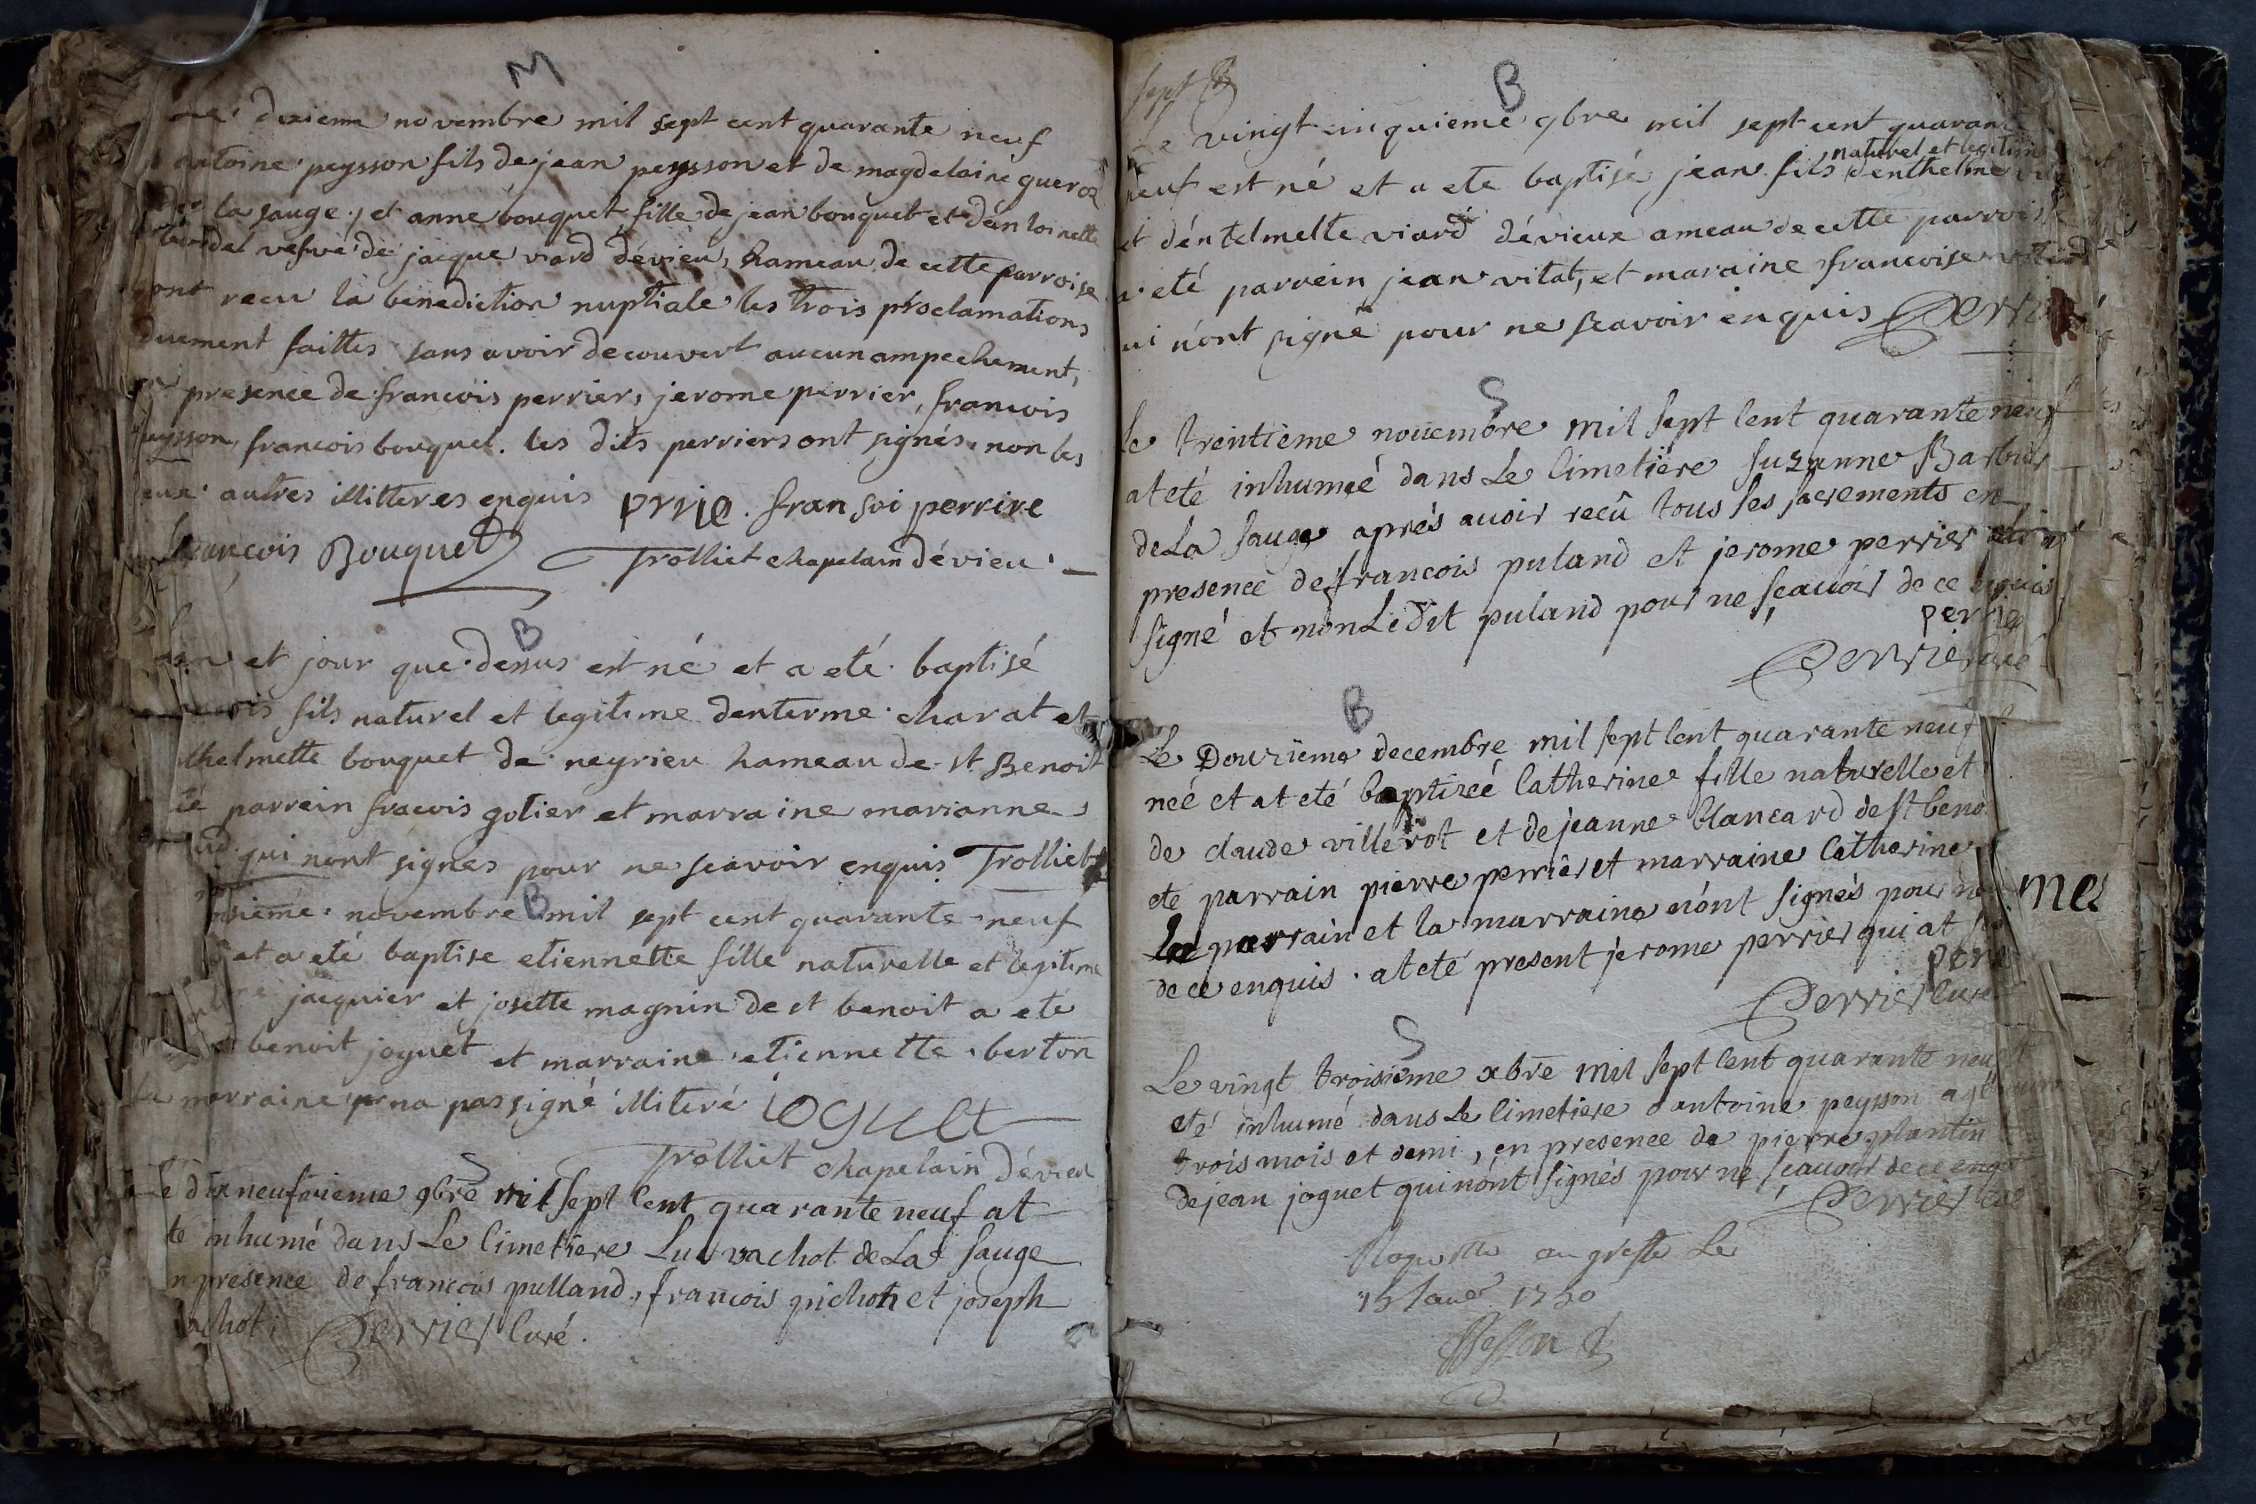 M
deuxieme novembre mil sept cent quarante neuf
antoine peysson fils de jean peysson et de magdelaine
la sauge, et anne bouquet fille de jean bouquet et
vefve de jacque viard dévieu, hameau de cette parroise
ont recu la benediction nuptiale les trois proclamations
duement faittes sans avoir decouvert aucun ampechement,
presence de francois perrier, jerome perrier, francois
peysson, francois bouquet. les dits perriers ont signés non les
autres illitteres enquis prrie. fransoi perrire
francois Bouquet Trolliet chapelain dévieu
B
et jour que dessus est né et a eté baptisé
fils naturel et legitime denterme charat et
thelmette bouquet de neyrieu hameau de st Benoit
té parrein fracois gotier et marraine marianne
qui nont signes pour ne scavoir enquis Trolliet
B
novembre mil sept cent quarante neuf
et a eté baptise etiennette fille naturelle et legitime
jacquier et josette magnin de st benoit a eté
benoit joguet et marraine etiennette berton
la marraine na pas signé illiteré ioguet
Trolliet chapelain dévieu
S
le dix neufvieme 9bre mil sept cent quarante neuf at
té inhumé dans Le Cimetiere Luc vachot de La Sauge
n presence de francois pulland, francois guichon et joseph
vachot. Perrier Curé.
Sept
B
Le vingt cinquieme 9bre mil sept cent quaran
neuf est né et a eté baptisé jean fils naturel et legitime denthelme
et déntelmette viard dévieux ameau de cette parroisse
a eté parrein jean vital, et maraine francoise
ui n'ont signé pour ne scavoir enquis Perrier
S
le treintième novembre mil sept Cent quarante neuf
at eté inhumée dans Le Cimetiere Suzanne Barbier
de La Sauge aprés avoir reçû tous ses sacrements en
presence de francois puland et jerome perrier
signé et non Ledit puland pour ne sçavoir de ce enquis
perrie
Perrier curé
B
Le Douzième decembre mil sept Cent quarante neuf
neé et at eté baptizeé Catherine fille naturelle et
de claude villerot et de jeanne blancard de st beno
eté parrain pierre perrier et marraine Catherine
le parrain et la marraine n'ont signés pour ne
de ce enquis. at eté present jerome perrier qui at
perrie
Perrier Curé
me
S
Le vingt troisième xbre mil sept Cent quarante neuf
eté inhumé dans Le Cimetiere antoine peysson agé
trois mois et demi, en presence de pierre plantin
de jean joguet qui n'ont signés pour ne sçavoir de ce enq
Perrier curé
au greffe Le
15 Janer 1750